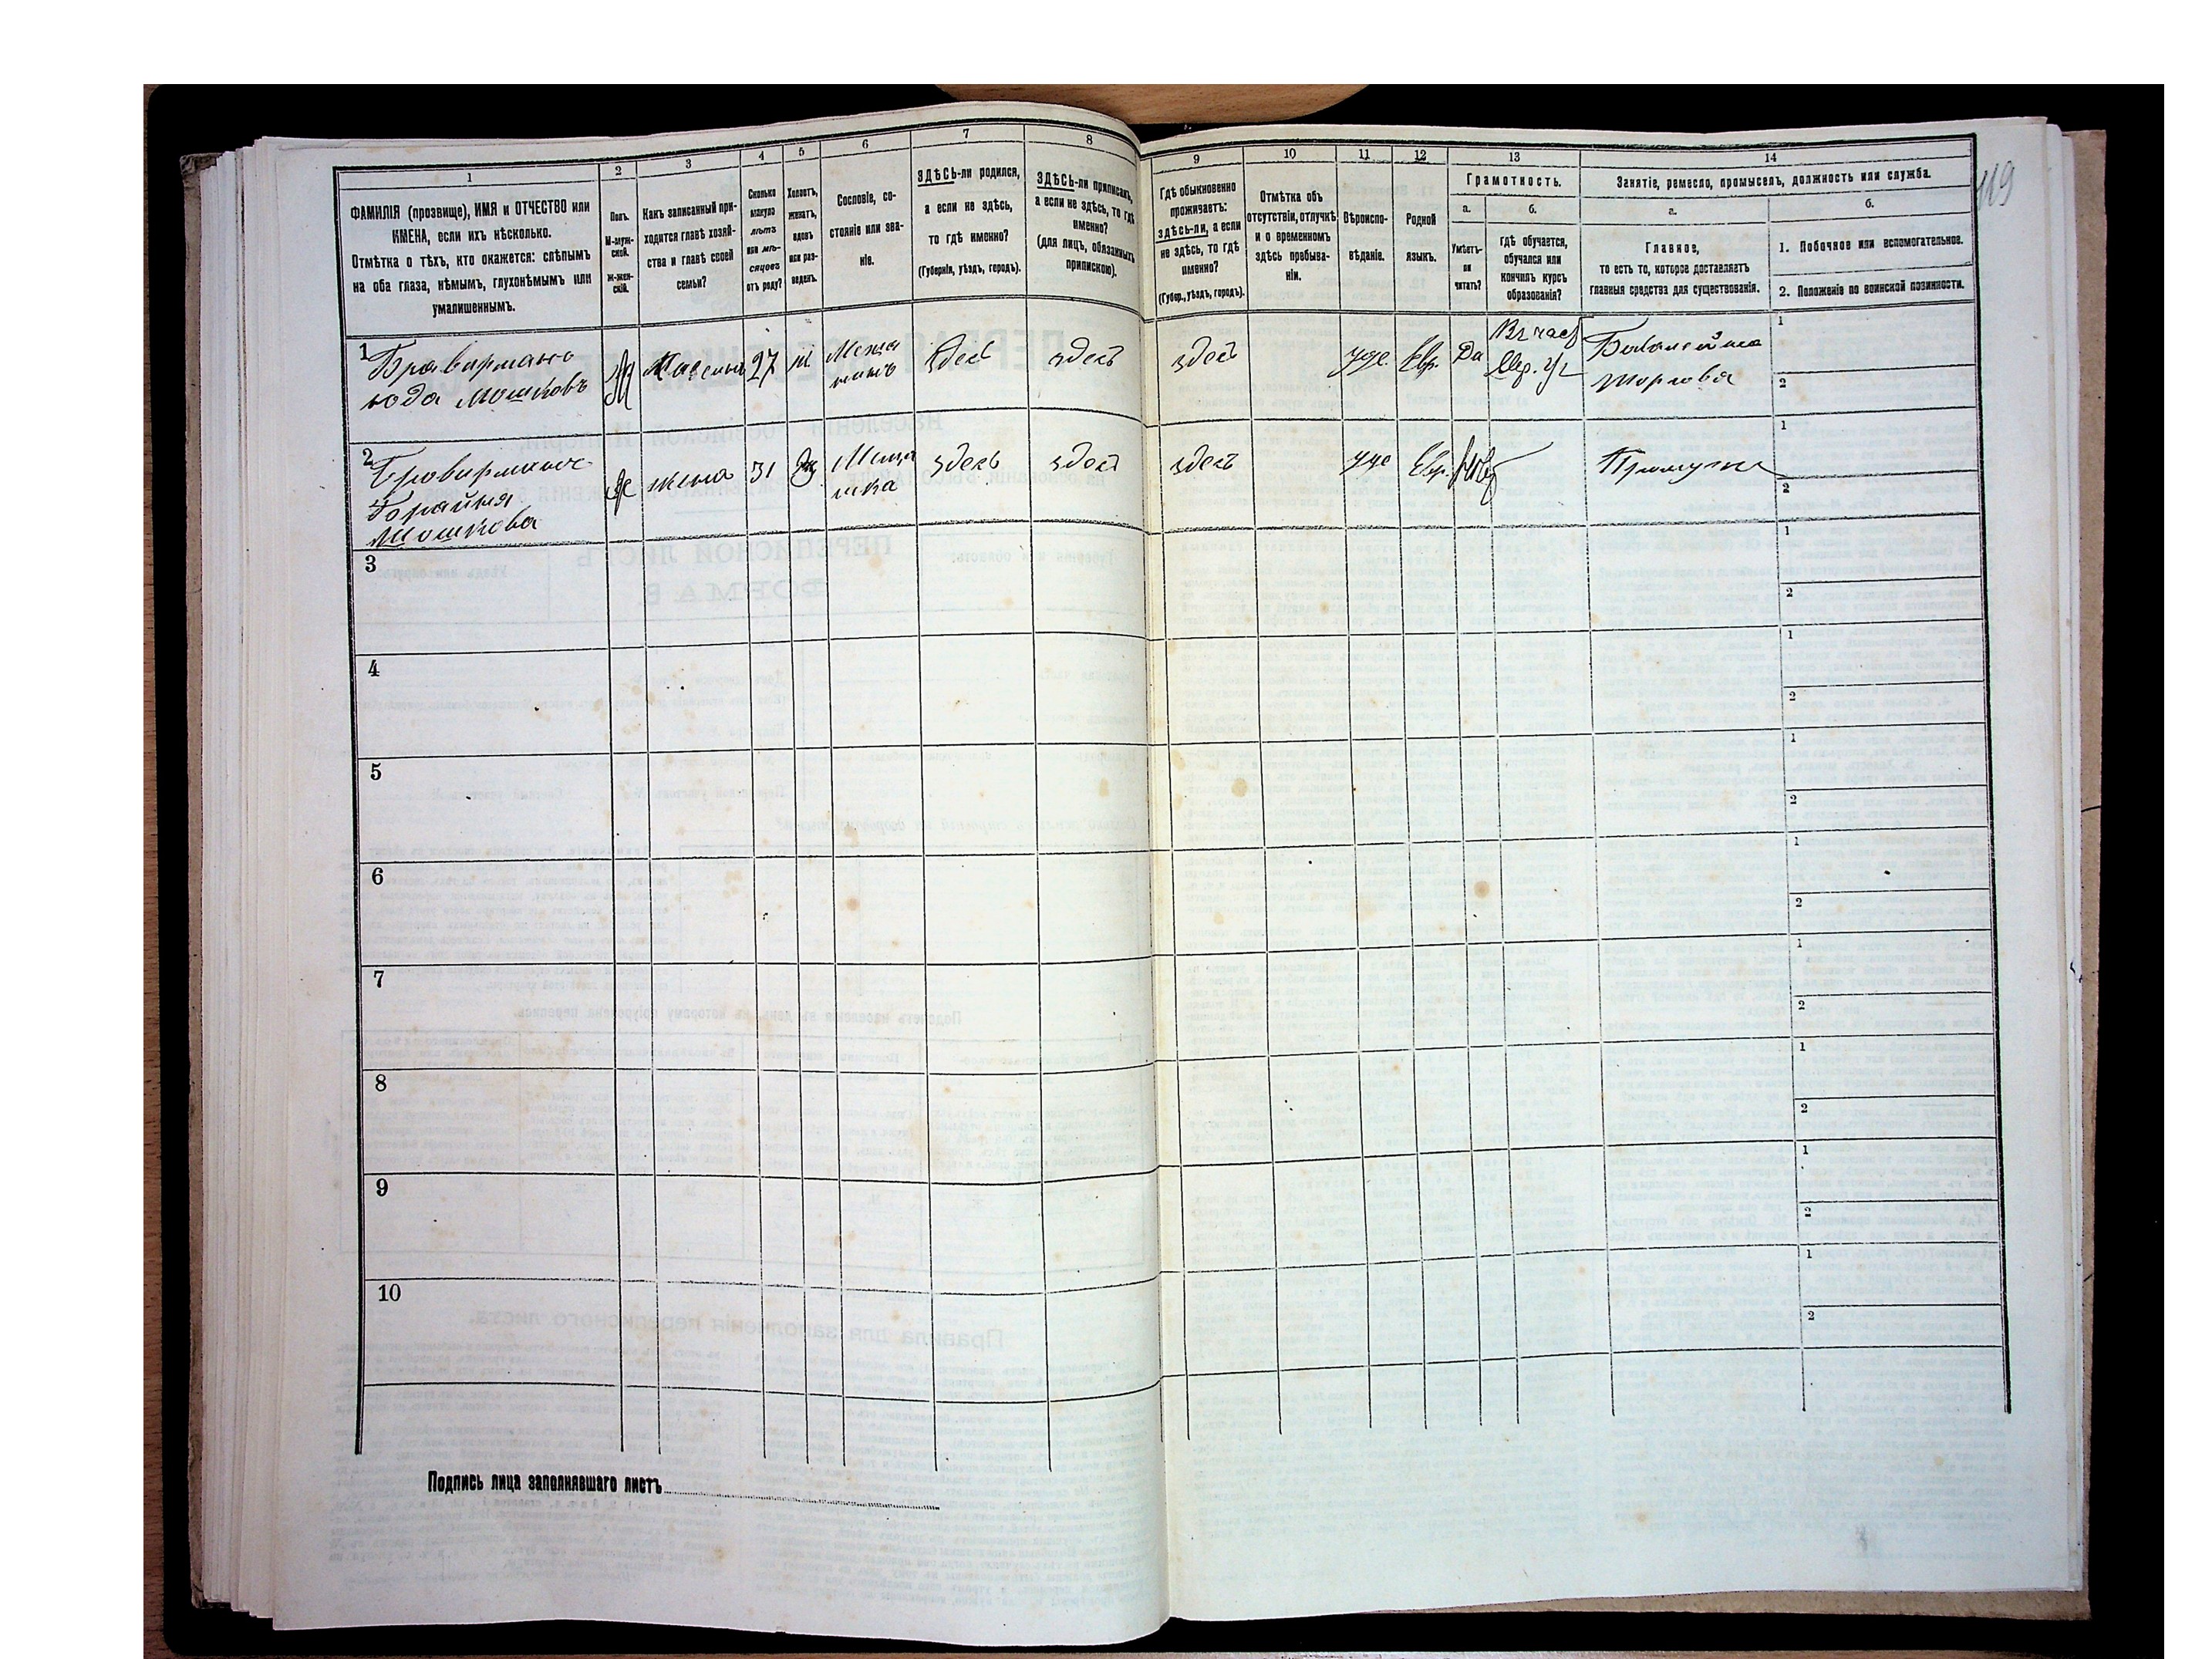 119
1
ФАМИЛІЯ (прозвище), ИМЯ и ОТЧЕСТВО или
ИМЕНА, если ихъ нѣсколько.
Отмѣтка о тѣхъ, кто окажется: слѣпымъ
на оба глаза, нѣмымъ, глухонѣмымъ или
умалишеннымъ.
2
Полъ.
М-муж-
ской.
Ж-жен-
скій.
3
Какъ записанный при-
ходится главѣ хозяй-
ства и главѣ своей
семьи?
4
Сколько
минуло
лѣтъ
или мѣ-
сяцевъ
отъ роду?
5
Холостъ,
женатъ,
вдовъ
или раз-
веденъ.
6
Сословіе, со-
стояніе или зва-
ніе.
7
ЗДѢСЬ-ли родился,
а если не здѣсь,
то гдѣ именно?
(Губернія, уѣздъ, городъ).
8
ЗДѢСЬ-ли приписанъ,
а если не здѣсь, то гдѣ
именно?
(для лицъ, обязанныхъ
припискою).
9
Гдѣ обыкновенно
проживаетъ:
здѣсь-ли, а если
не здѣсь, то гдѣ
именно?
(Губер., уѣздъ, городъ).
10
Отмѣтка объ
отсутствіи, отлучкѣ
и о временномъ
здѣсь пребыва-
ніи.
11
Вѣроиспо-
вѣданіе.
12
Родной
языкъ.
13
Грамотность.
а.
Умѣетъ-
ли
читать?
б.
гдѣ обучается,
обучался или
кончилъ курсъ
образованія?
14
Занятіе, ремесло, промыселъ, должность или служба.
а.
Главное,
то есть то, которое доставляетъ
главныя средства для существованія.
б.
1. Побочное или вспомогательное.
2. Положеніе по воинской повинности.
1
Мошковъ
М
27
Меща
нинъ
здесь
здесь
здесь
іуде.
Евр.
Да
Въ част
Евр. уч
Бакалейная
торговля
1
2
2
Мошкова
Ж
жена
31
Меща
нка
здесь
здесь
здесь
іуде
Евр.
Нѣт
При муже
1
2
3
1
2
4
1
2
5
1
2
6
1
2
7
1
2
8
1
2
9
1
2
10
1
2
Подпись лица заполнявшаго листъ